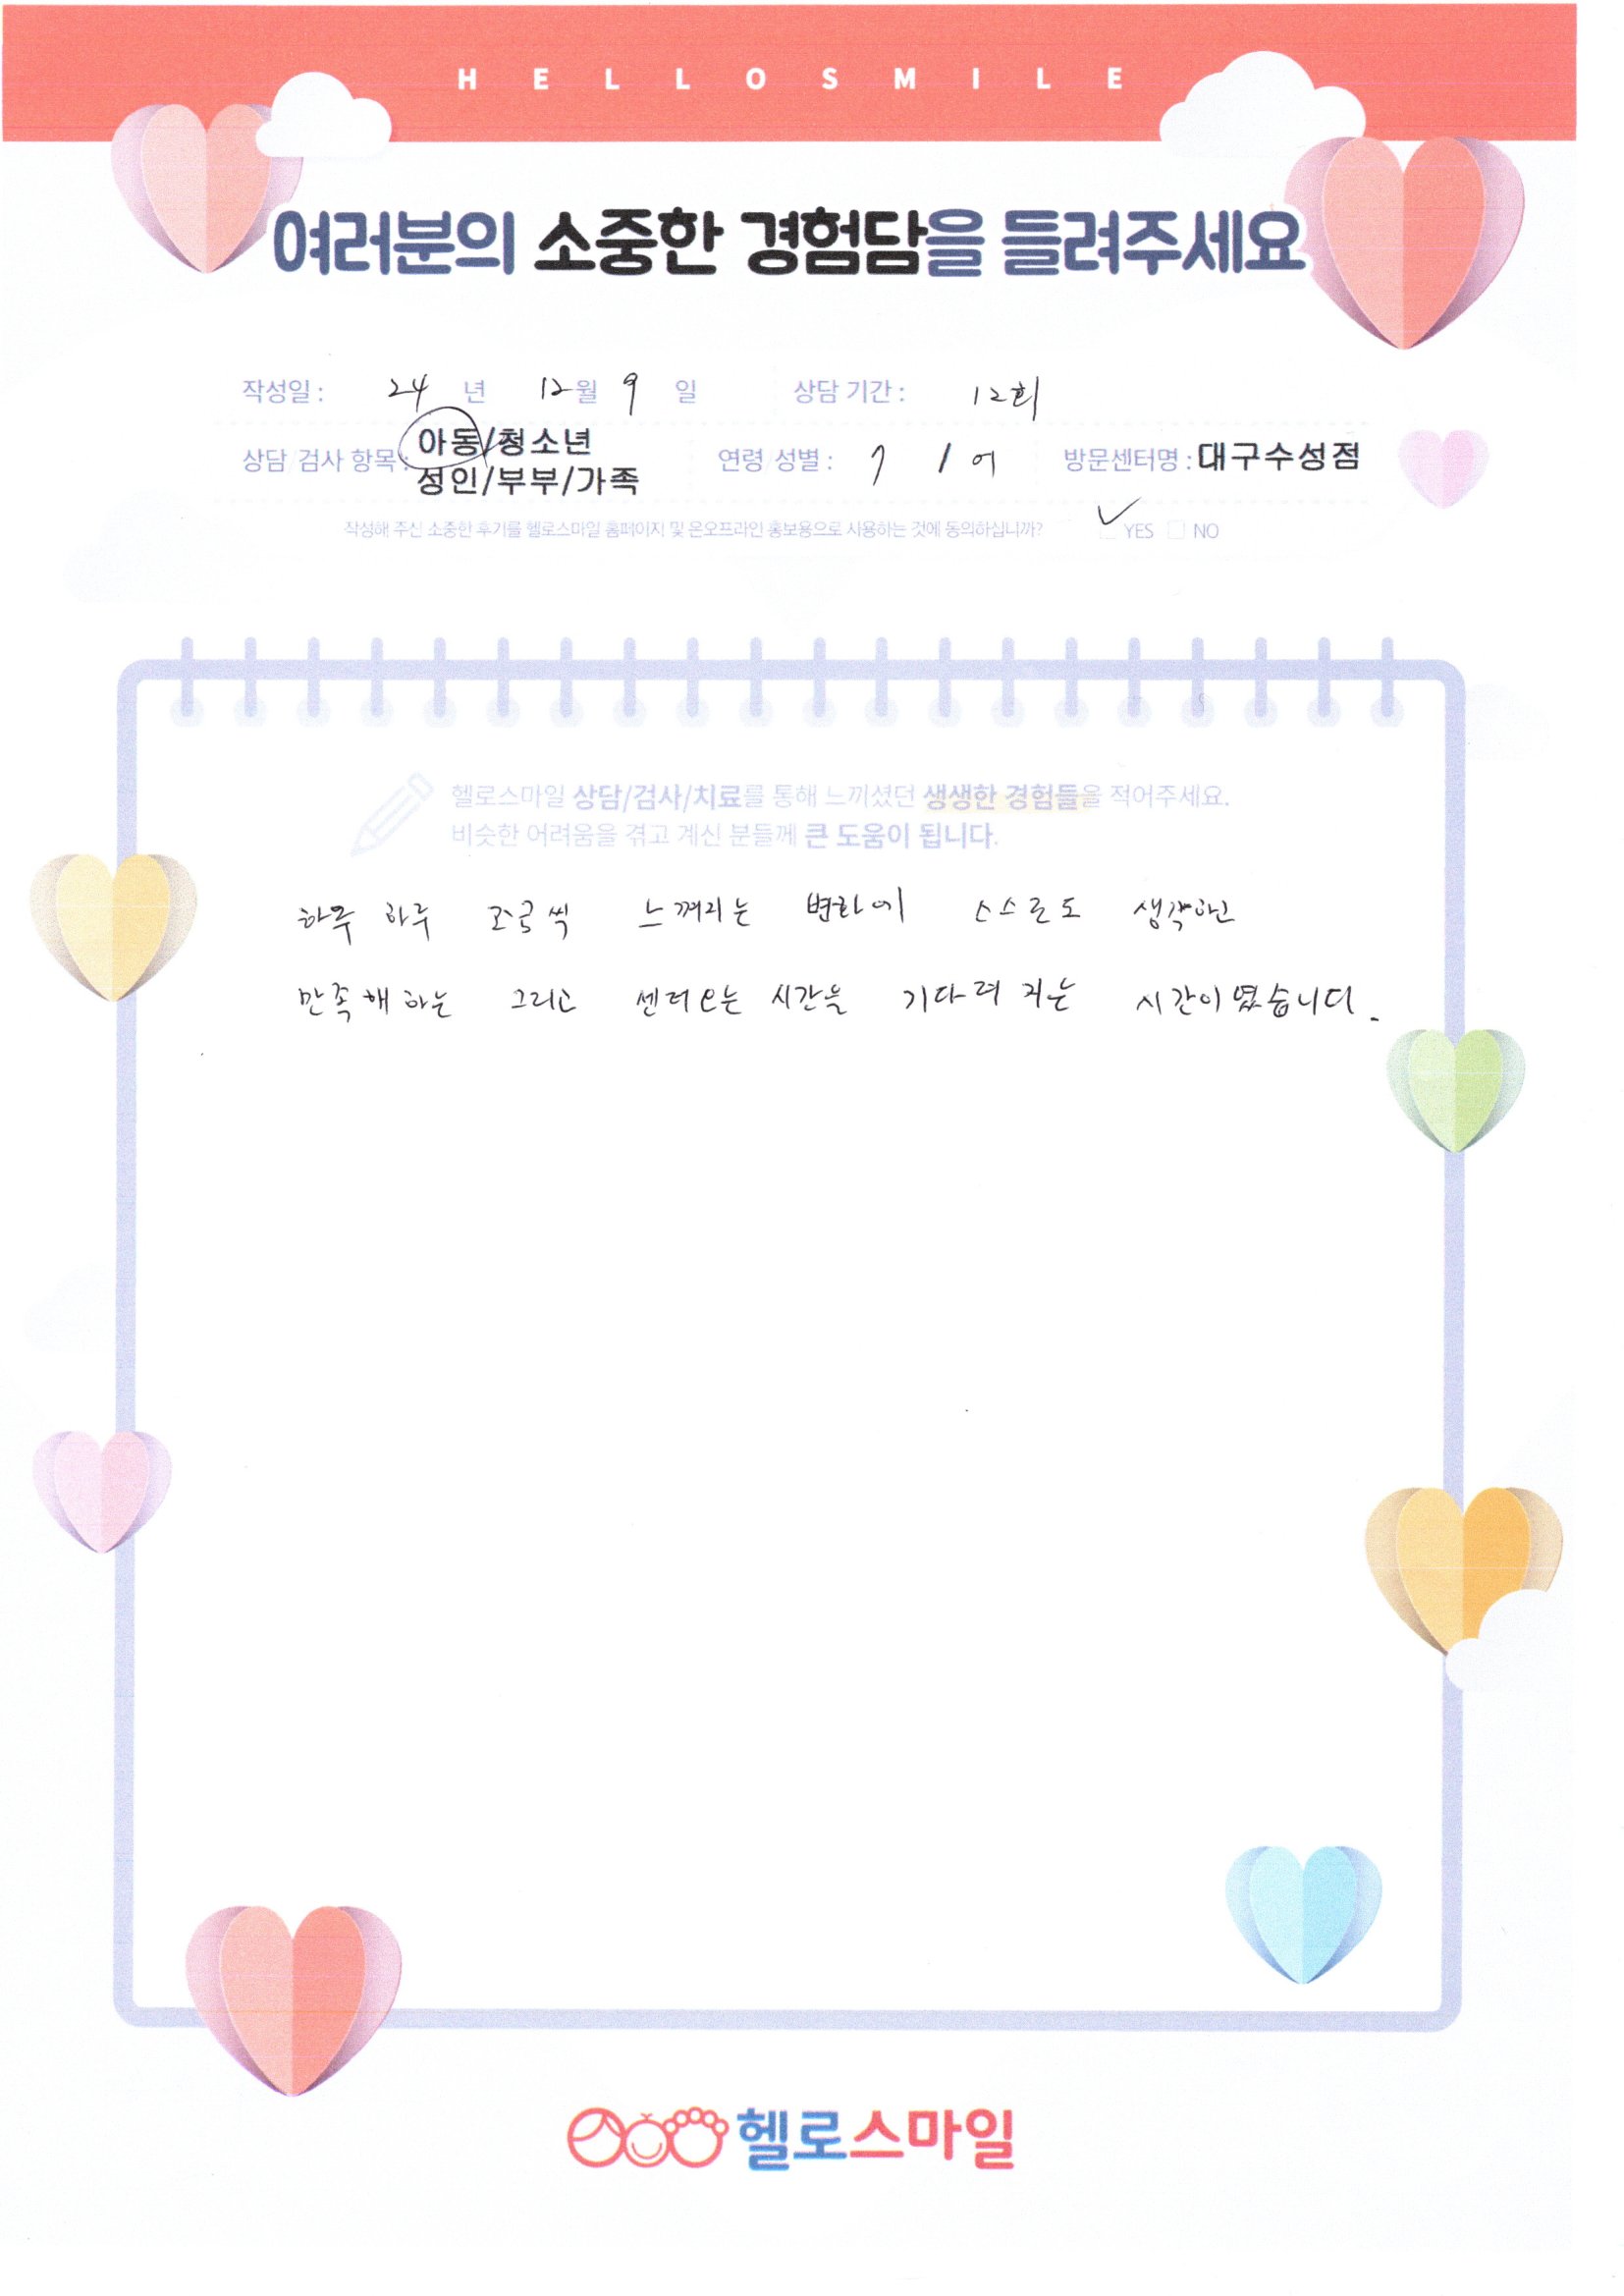 HELLOSMILE
여러분의 소중한 경험담을 들려주세요
작성일 : 24 년 12월 9 일 상담 기간 : 12회
상담 검사 항목 : 아동/청소년
성인/부부/가족
연령 성별 : 7 / 여 방문센터명 : 대구수성점
작성해 주신 소중한 후기를 헬로스마일 홈페이지 및 온오프라인 홍보용으로 사용하는 것에 동의하십니까? YES NO
헬로스마일 상담/검사/치료를 통해 느끼셨던 생생한 경험들을 적어주세요.
비슷한 어려움을 겪고 계신 분들께 큰 도움이 됩니다.
하루 하루 조금씩 느껴지는 변화에 스스로도 생각하고
만족해 하는 그리고 센터오는 시간을 기다려 지는 시간이였습니다.
헬로스마일